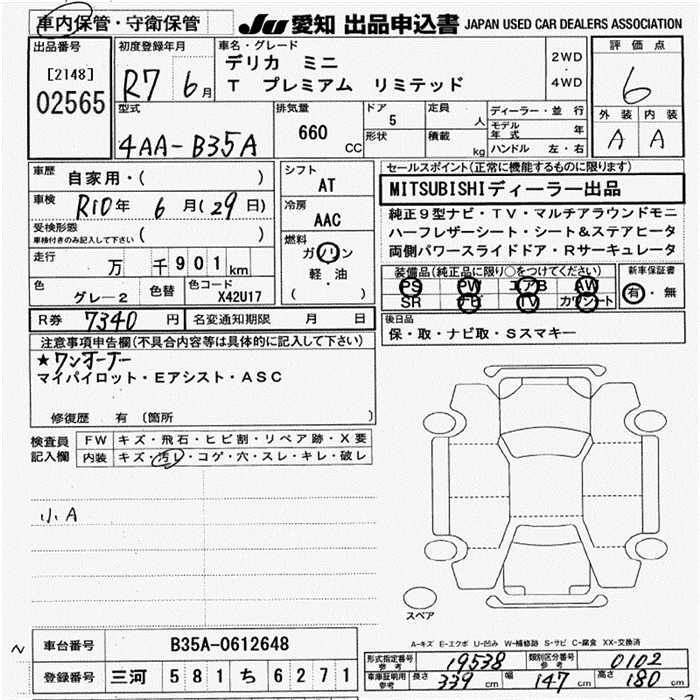 車内保管・守衛保管
JU 愛知 出品申込書 JAPAN USED CAR DEALERS ASSOCIATION
出品番号
[2148]
02565
初度登録年月
R7 6月
車名・グレード
デリカ ミニ
T プレミアム リミテッド
2WD
・
4WD
評価点
6
外装 内装
A A
型式
4AA-B35A
排気量
660 CC
ドア
5
形状
定員
人
積載
kg
ディーラー・並行
モデル年式 年
ハンドル 左・右
車歴
自家用・( )
車検
R10年 6月(29日)
受検形態
車検付きのみ記入して下さい ( )
走行
万 千901km
色
グレー2
色替
色コード
X42U17
シフト
AT
冷房
AAC
燃料
ガソリン
軽・油
( )
セールスポイント(正常に機能するものに限ります)
MITSUBISHIディーラー出品
純正9型ナビ・TV・マルチアラウンドモニ
ハーフレザーシート・シート&ステアヒータ
両側パワースライドドア・Rサーキュレータ
装備品(純正品に限り○をつけてください)
PS PW エアB AW
SR ナビ TV カワシート
新車保証書
有・無
R券 7340円
名変通知期限 月 日
後日品
保・取・ナビ取・Sスマキー
注意事項申告欄(不具合内容等は具体的に記入して下さい)
★ワンオーナー
マイパイロット・Eアシスト・ASC
修復歴 有 (箇所 )
検査員記入欄
FW キズ・飛石・ヒビ割・リペア跡・X要
内装 キズ・汚レ・コゲ・穴・スレ・キレ・破レ
小A
スペア
A-キズ E-エクボ U-凹み W-補修跡 S-サビ C-腐食 XX-交換済
車台番号 B35A-0612648
登録番号 三河 581 ち 6271
形式指定番号 参考 19538
類別区分番号 参考 0102
車庫証明用 参考 長さ 339cm 幅 147cm 高さ 180cm